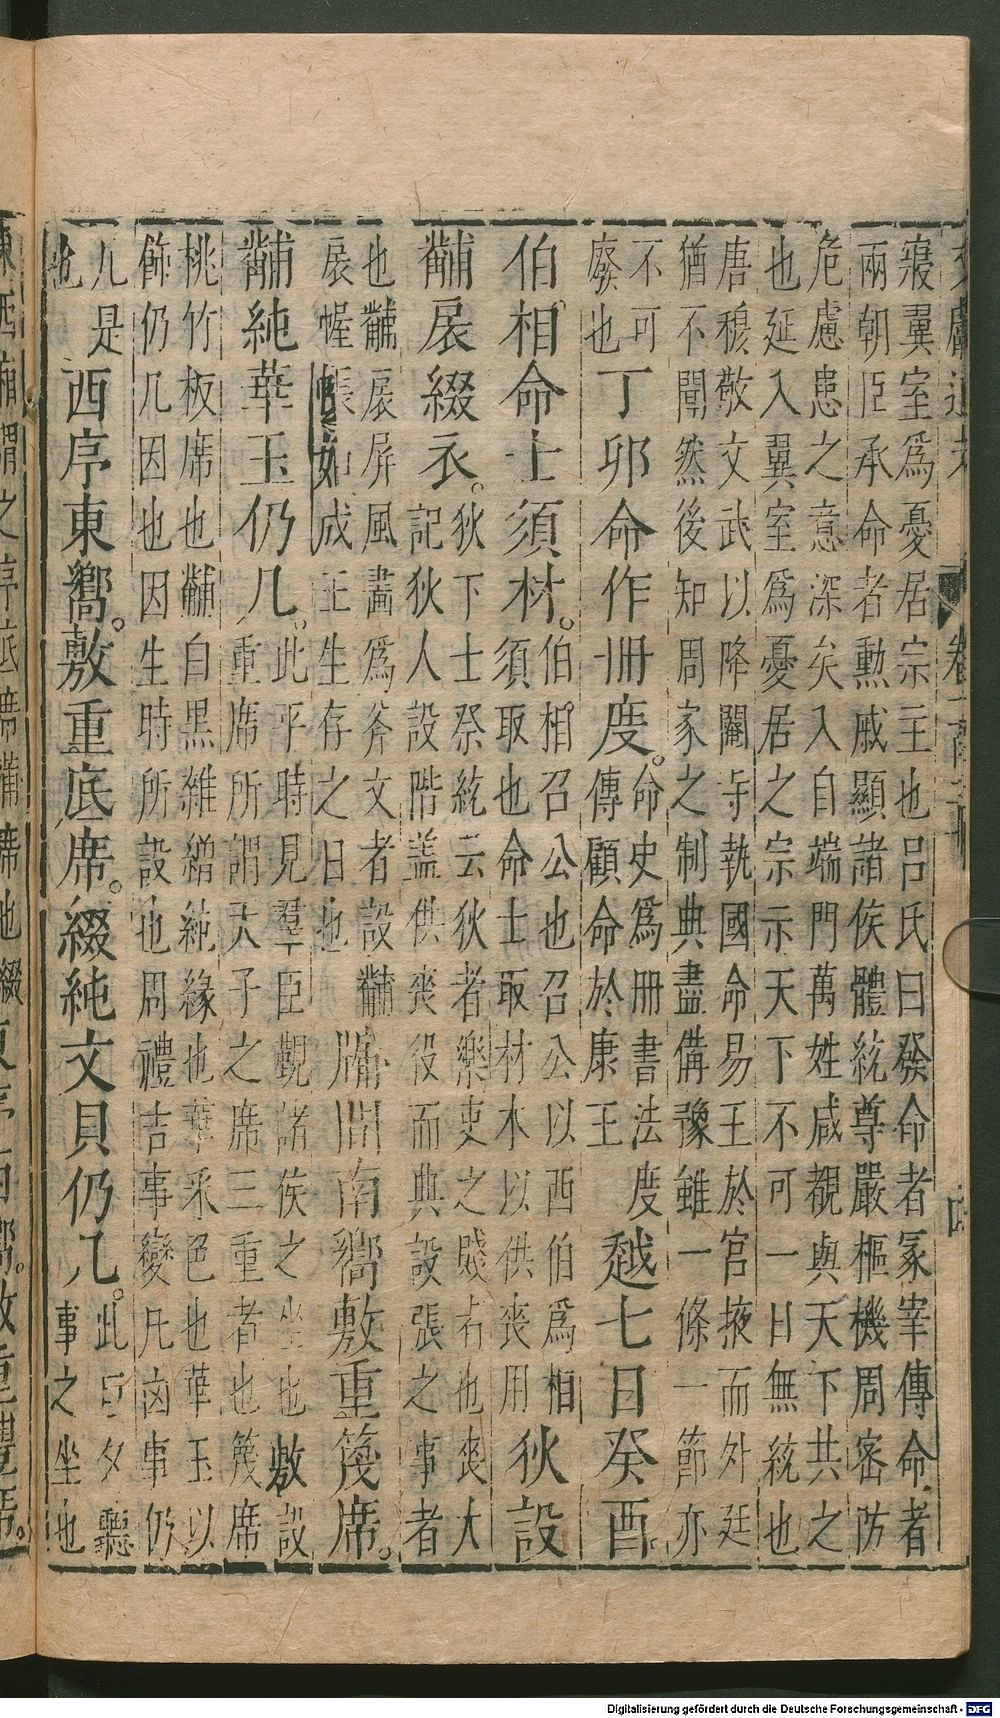 寢翼室爲憂居宗主也吕氏曰發命者冢宰傳命者
兩朝臣承命者勳戚顯諸侯體統尊嚴樞機周密防
危慮患之意深矣入自端門萬姓咸覩與天下共之
也延入翼室爲憂居之宗示天下不可一日無統也
唐穆敬文武以降閽寺執國命易王於宮掖而外廷
猶不聞然後知周家之制典盡備豫雖一條一節亦
不可
廢也
丁卯命作冊度。
命史爲冊書法度
傳顧命於康王
越七日癸酉。
伯相命士須材。
伯相。召公也召公以西伯爲相
須取也命士取材木以供喪用
狄設
黼扆綴衣。
狄下士祭統云狄者樂吏之賤者也喪大
記狄人設階盖供喪役而典設張之事者
也黼扆屏風畵爲斧文者設黼
扆幄帳如成王生存之日也
牖間南嚮敷重篾席。
黼純華玉仍几。
此平時見羣臣覲諸侯之坐也敷設
重席所謂天子之席三重者也篾席
桃竹板席也黼白黒雜繒純緣也華采色也華玉以
飾仍几因也因生時所設也周禮吉事變几凶事仍
几是
也
西序東嚮。敷重底席。綴純文貝仍几。
此旦夕聽
事之坐也
卷
四
Digitalisierung gefördert durch die Deutsche Forschungsgemeinschaft - DFG